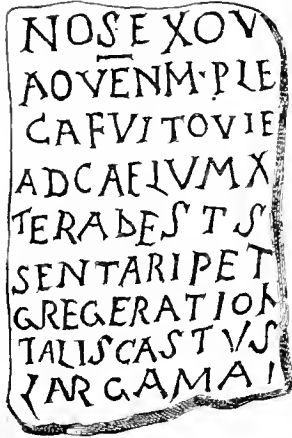 NOS·E XOV
AOVENM·PLE
CAFVITOVIE
ADCAELVMX
TERADESTS
SENTARIPET
GREGERATION
TALISCASTVS
LARGAMAI